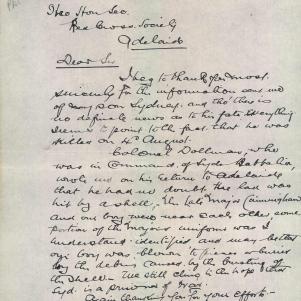 The Hon Sec.
Red Cross Society
Adelaide
Dear Sir
I beg to thank you most
sincerely for the information sent me
of my son Sydney. and tho there is
no definite news as to his fate everything
seems to point to the fact that he was
killed on August.
Colonel Dollman, who
was in Command, of Syds Battalion,
wrote me on his return to Adelaide
that he had no doubt the lad was
hit by a shell, the late Major Cunningham
and our boy were near each other, some
portion of the Majors uniform was I
understand identified and
our boy was blown to pieces or buried
by the debris caused by the bursting of
the Shell. We still cling to the hope that
Syd. is a prisoner of war.
Again thanking you for your efforts